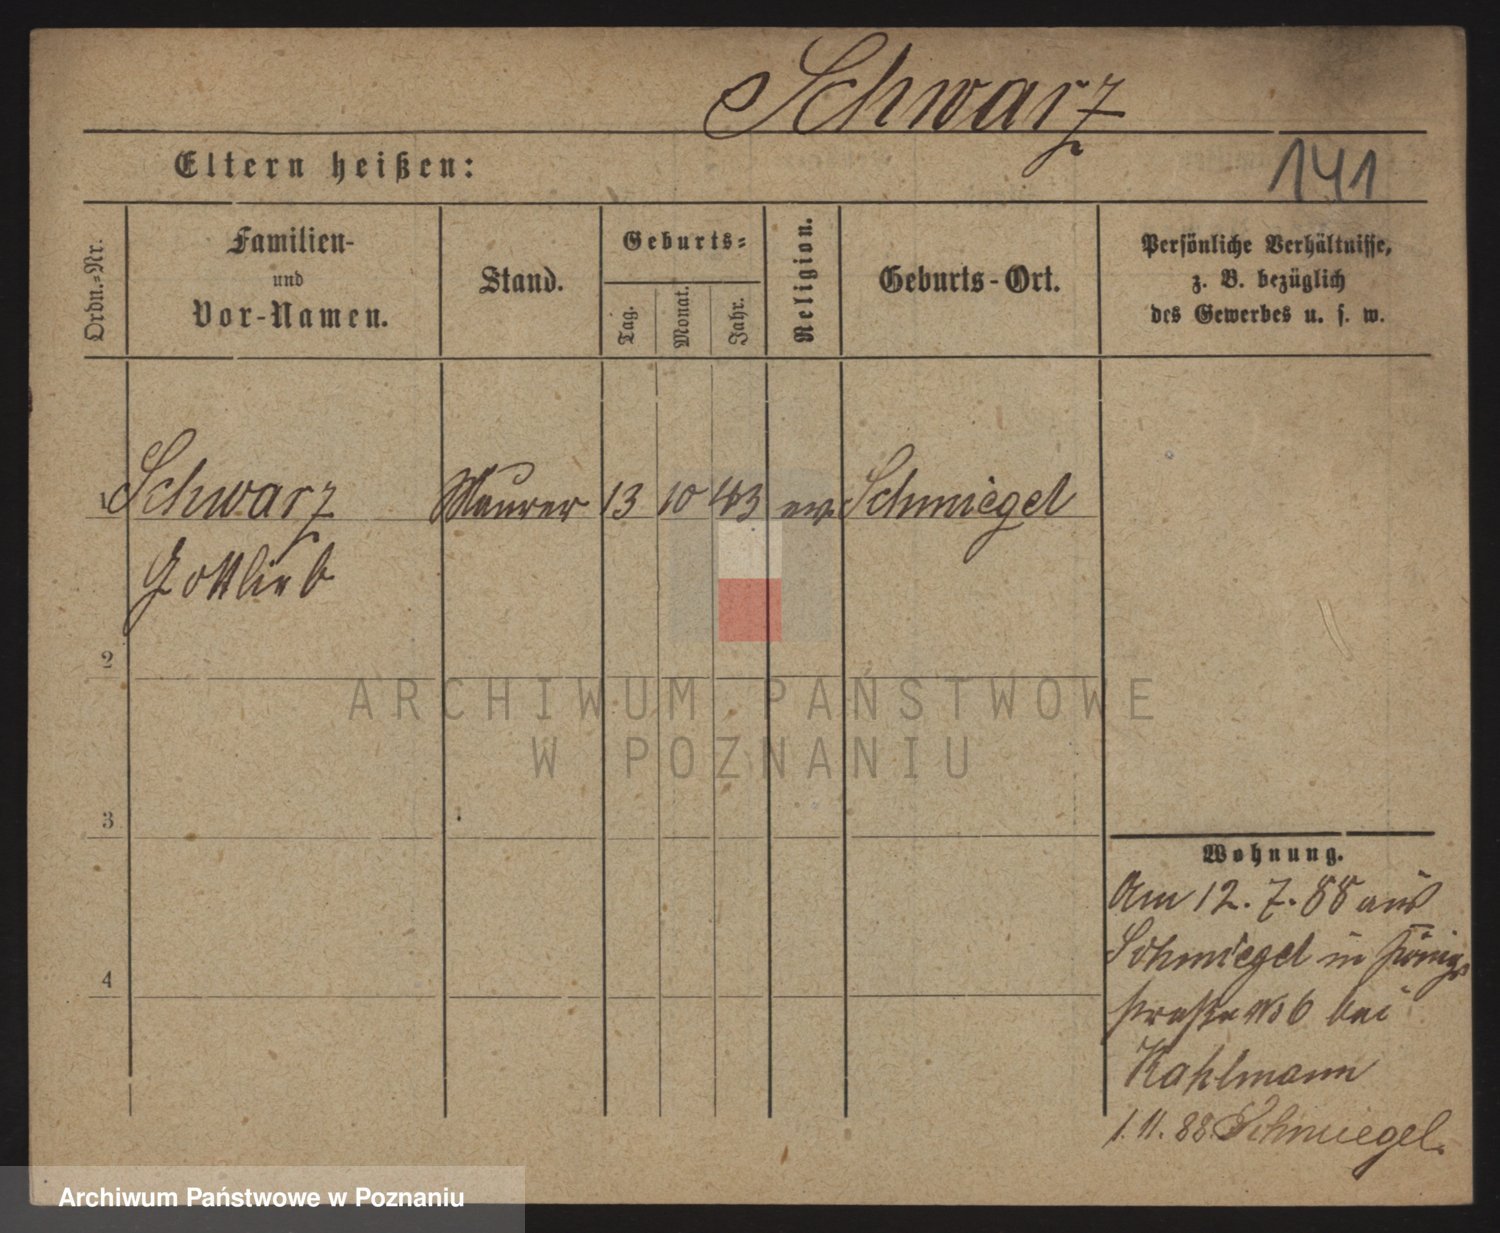 Schwarz
Eltern heißen:
141
Ordn.-Nr.
Familien-
und
Vor-Namen.
Stand.
Geburts-
Tag.
Monat.
Jahr.
Religion.
Geburts-Ort.
Persönliche Verhältnisse,
z. B. bezüglich
des Gewerbes u. s. w.
1 Schwarz Maurer 13 10 43 ev Schmiegel
Gottlieb
2
3
4
ARCHIWUM PAŃSTWOWE
W POZNANIU
Wohnung.
Am 12. 7. 88 aus
Schmiegel in Königs
straße No 6 bei
Kahlmann
1. 11. 88 Schmiegel.
Archiwum Państwowe w Poznaniu